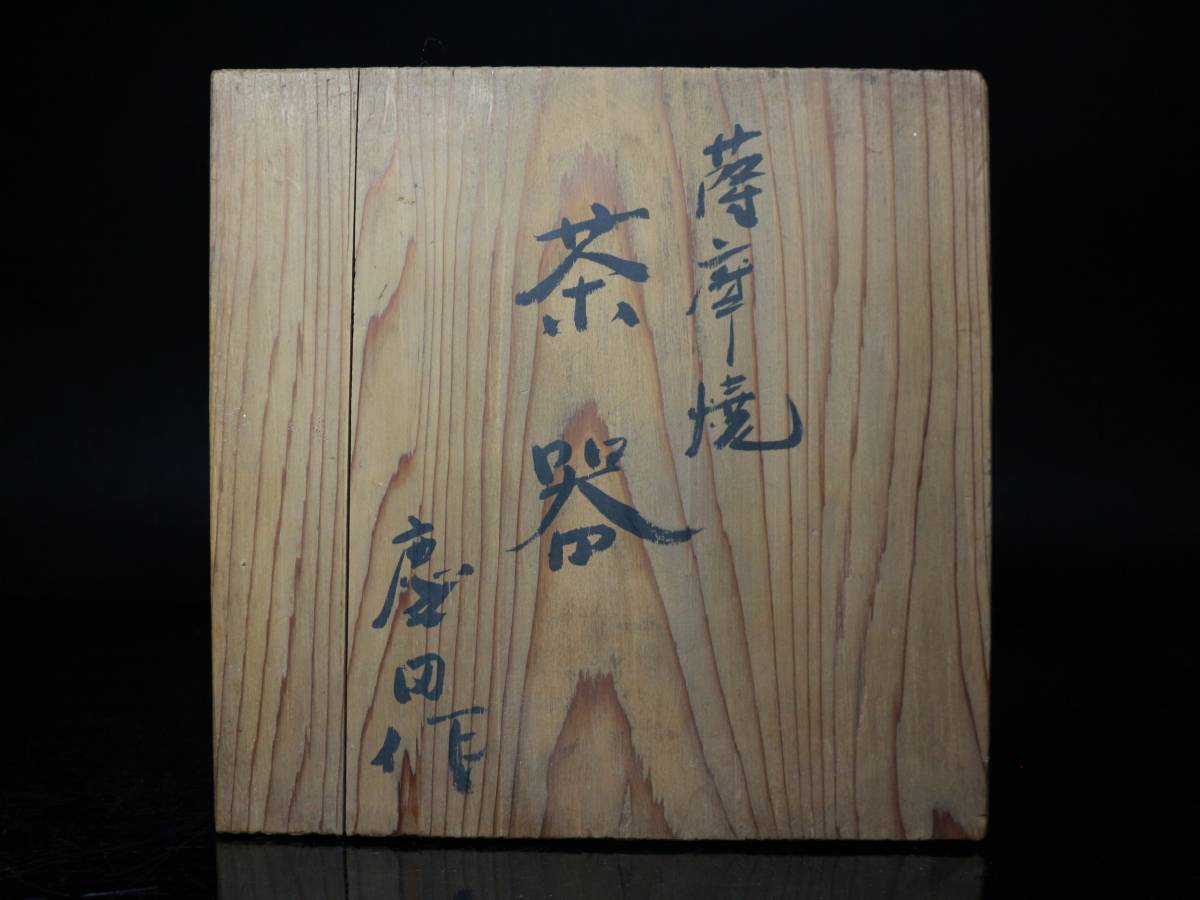 薩摩焼
茶器
慶田作